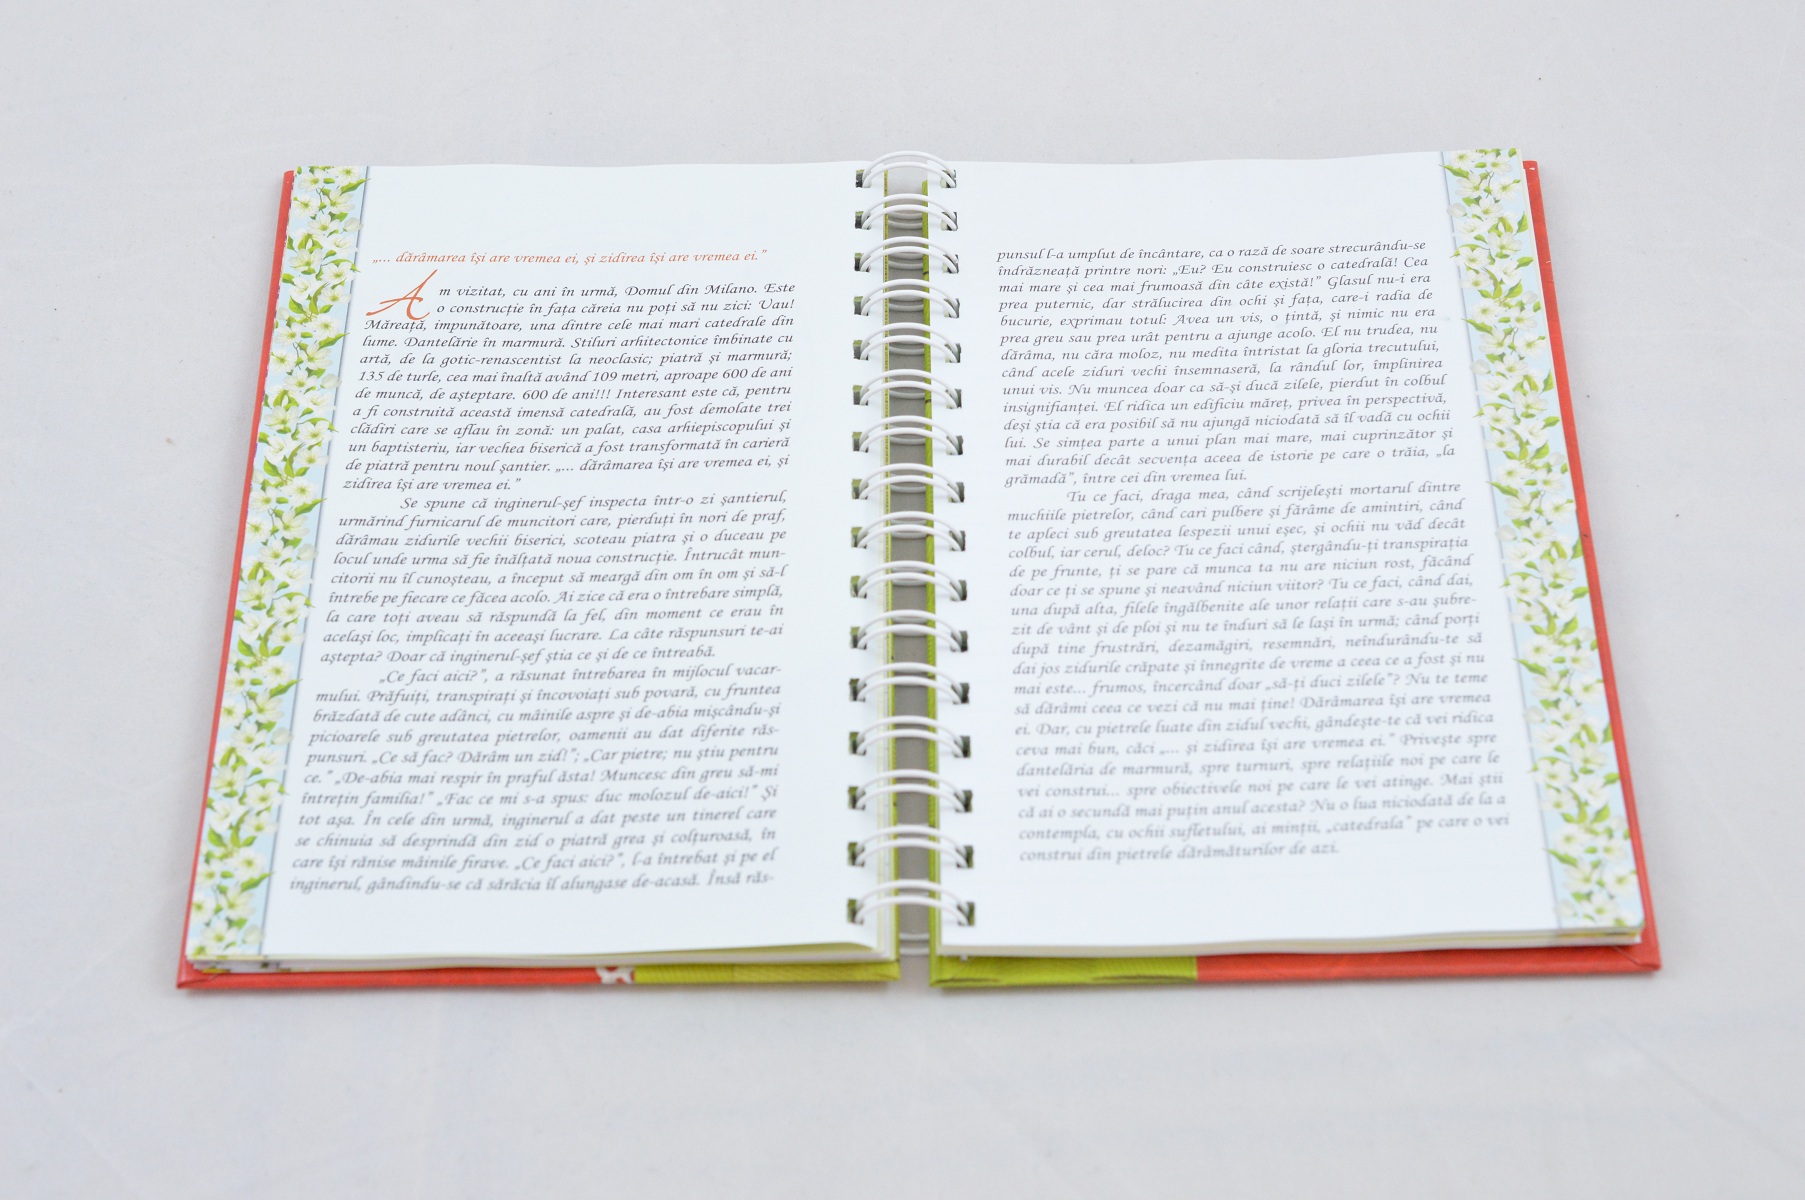 „... dărâmarea își are vremea ei, și zidirea își are vremea ei.”
Am vizitat, cu ani în urmă, Domul din Milano. Este
o construcție în fața căreia nu poți să nu zici: Uau!
Măreață, impunătoare, una dintre cele mai mari catedrale din
lume. Dantelărie în marmură. Stiluri arhitectonice îmbinate cu
artă, de la gotic-renascentist la neoclasic; piatră și marmură;
135 de turle, cea mai înaltă având 109 metri, aproape 600 de ani
de muncă, de așteptare. 600 de ani!!! Interesant este că, pentru
a fi construită această imensă catedrală, au fost demolate trei
clădiri care se aflau în zonă: un palat, casa arhiepiscopului și
un baptisteriu, iar vechea biserică a fost transformată în carieră
de piatră pentru noul șantier. „... dărâmarea își are vremea ei, și
zidirea își are vremea ei.”
Se spune că inginerul-șef inspecta într-o zi șantierul,
urmărind furnicarul de muncitori care, pierduți în nori de praf,
dărâmau zidurile vechii biserici, scoteau piatra și o duceau pe
locul unde urma să fie înălțată noua construcție. Întrucât mun-
citorii nu îl cunoșteau, a început să meargă din om în om și să-l
întrebe pe fiecare ce făcea acolo. Ai zice că era o întrebare simplă,
la care toți aveau să răspundă la fel, din moment ce erau în
același loc, implicați în aceeași lucrare. La câte răspunsuri te-ai
aștepta? Doar că inginerul-șef știa ce și de ce întreabă.
„Ce faci aici?”, a răsunat întrebarea în mijlocul vacar-
mului. Prăfuiți, transpirați și încovoiați sub povară, cu fruntea
brăzdată de cute adânci, cu mâinile aspre și de-abia mișcându-și
picioarele sub greutatea pietrelor, oamenii au dat diferite răs-
punsuri. „Ce să fac? Dărâm un zid!”; „Car pietre; nu știu pentru
ce.” „De-abia mai respir în praful ăsta! Muncesc din greu să-mi
întrețin familia!” „Fac ce mi s-a spus: duc molozul de-aici!” Și
tot așa. În cele din urmă, inginerul a dat peste un tinerel care
se chinuia să desprindă din zid o piatră grea și colțuroasă, în
care își rănise mâinile firave. „Ce faci aici?”, l-a întrebat și pe el
inginerul, gândindu-se că sărăcia îl alungase de-acasă. Însă răs-
punsul l-a umplut de încântare, ca o rază de soare strecurându-se
îndrăzneață printre nori: „Eu? Eu construiesc o catedrală! Cea
mai mare și cea mai frumoasă din câte există!” Glasul nu-i era
prea puternic, dar strălucirea din ochi și fața, care-i radia de
bucurie, exprimau totul: Avea un vis, o țintă, și nimic nu era
prea greu sau prea urât pentru a ajunge acolo. El nu trudea, nu
dărâma, nu căra moloz, nu medita întristat la gloria trecutului,
când acele ziduri vechi însemnaseră, la rândul lor, împlinirea
unui vis. Nu muncea doar ca să-și ducă zilele, pierdut în colbul
insignifianței. El ridica un edificiu măreț, privea în perspectivă,
deși știa că era posibil să nu ajungă niciodată să îl vadă cu ochii
lui. Se simțea parte a unui plan mai mare, mai cuprinzător și
mai durabil decât secvența aceea de istorie pe care o trăia, „la
grămadă”, între cei din vremea lui.
Tu ce faci, draga mea, când scrijelești mortarul dintre
muchiile pietrelor, când cari pulbere și fărâme de amintiri, când
te apleci sub greutatea lespezii unui eșec, și ochii nu văd decât
colbul, iar cerul, deloc? Tu ce faci când, ștergându-ți transpirația
de pe frunte, ți se pare că munca ta nu are niciun rost, făcând
doar ce ți se spune și neavând niciun viitor? Tu ce faci, când dai,
una după alta, filele îngălbenite ale unor relații care s-au șubre-
zit de vânt și de ploi și nu te înduri să le lași în urmă; când porți
după tine frustrări, dezamăgiri, resemnări, neîndurându-te să
dai jos zidurile crăpate și înnegrite de vreme a ceea ce a fost și nu
mai este... frumos, încercând doar „să-ți duci zilele”? Nu te teme
să dărâmi ceea ce vezi că nu mai ține! Dărâmarea își are vremea
ei. Dar, cu pietrele luate din zidul vechi, gândește-te că vei ridica
ceva mai bun, căci „... și zidirea își are vremea ei.” Privește spre
dantelăria de marmură, spre turnuri, spre relațiile noi pe care le
vei construi... spre obiectivele noi pe care le vei atinge. Mai știi
că ai o secundă mai puțin anul acesta? Nu o lua niciodată de la a
contempla, cu ochii sufletului, ai minții, „catedrala” pe care o vei
construi din pietrele dărâmăturilor de azi.